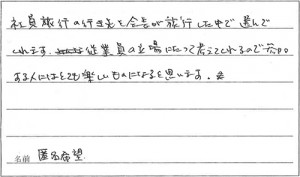 社員旅行の行き先を会長が旅行した中で選んで
くれます。従業員の立場にたって考えてくれるので参加
する人にはとても楽しいものになると思います。
名前 匿名希望